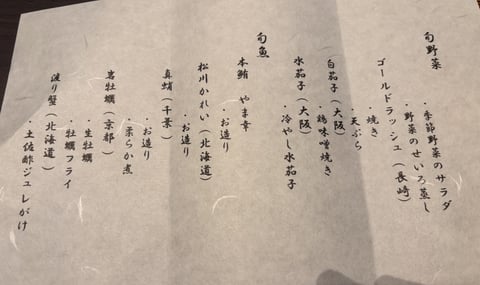 旬野菜
・季節野菜のサラダ
・野菜のせいろ蒸し
ゴールドラッシュ(長崎)
・焼き
・天ぷら
白茄子(大阪)
・鶏味噌焼き
水茄子(大阪)
・冷やし水茄子
旬魚
本鮪 やま幸
・お造り
松川かれい(北海道)
・お造り
真蛸(千葉)
・お造り
・柔らか煮
岩牡蠣(京都)
・生牡蠣
・牡蠣フライ
渡り蟹(北海道)
・土佐酢ジュレがけ